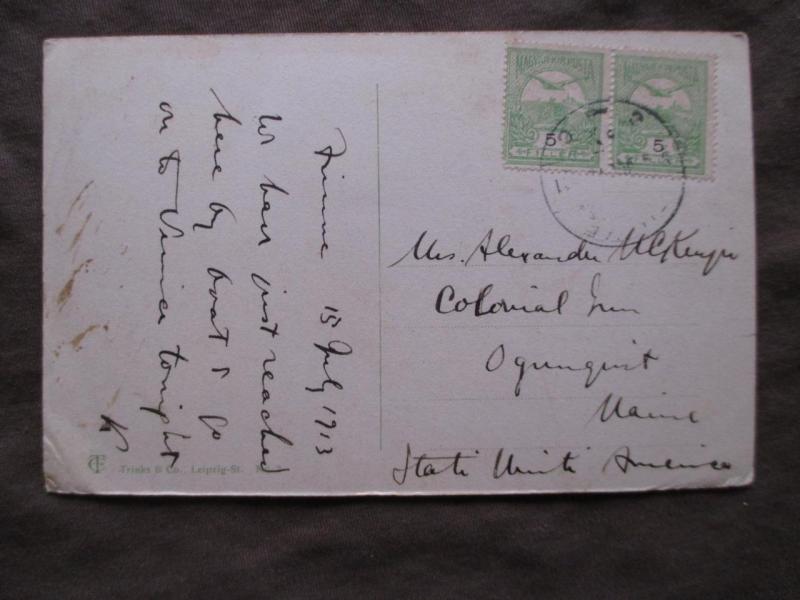 Fiume 15 July 1913
We have just reached
here by boat & go
on to Venice tonight
K
MAGYAR KIR. POSTA
5
FILLER
MAGYAR KIR. POSTA
5
FILLER
Mrs. Alexander McKenzie
Colonial Inn
Ogunquit
Maine
Stati Uniti America
Trinks & Co., Leipzig-St.